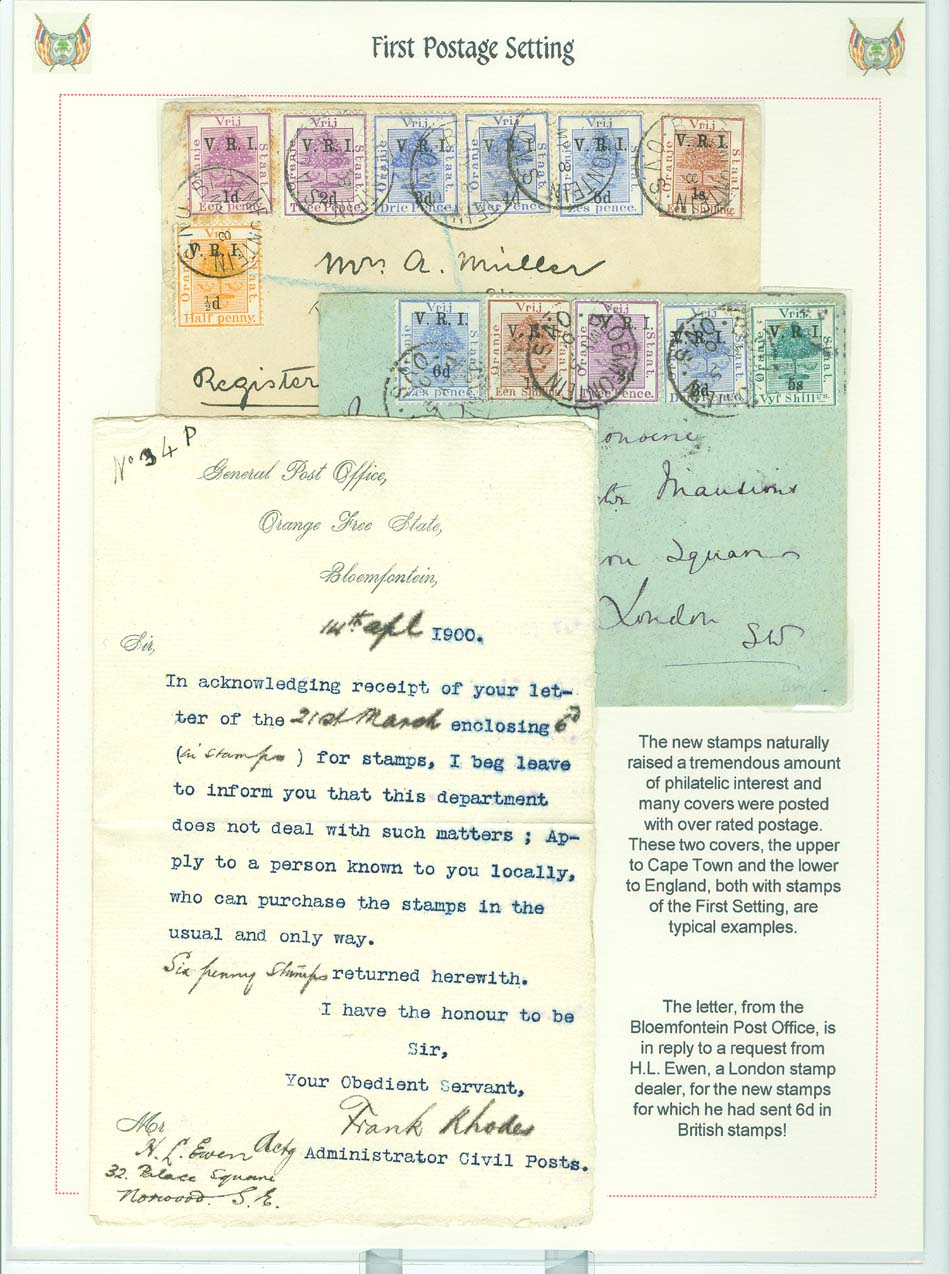 First Postage Setting
Vrij Vrij Vrij Vrij Vrij Vrij
Oranje Staat. Oranje Staat. Oranje Staat. Oranje Staat. Oranje Staat. Oranje Staat.
V. R. I. V. R. I. V. R. I. V. R. I. V. R. I. V. R. I.
1d 2d 3d 4d 6d 1s
Een penny. Twee Pence. Drie Pence. Vier Pence. Zes pence. Een Shilling.
Oranje Staat.
V. R. I.
½d
Half penny.
Mrs A. Müller
Register
Vrij Vrij Vrij Vrij Vrij
Oranje Staat. Oranje Staat. Oranje Staat. Oranje Staat. Oranje Staat.
V. R. I. V. R. I. V. R. I. V. R. I. V. R. I.
6d 5s
Zes pence. Een Shilling. Twee Pence. Vyf Shill
Mansions
Square
London
SW
No 34 P
General Post Office,
Orange Free State,
Bloemfontein,
14th apl 1900.
Sir,
In acknowledging receipt of your let-
ter of the 21st March enclosing 6d
(in stamps) for stamps, I beg leave
to inform you that this department
does not deal with such matters ; Ap-
ply to a person known to you locally,
who can purchase the stamps in the
usual and only way.
Six penny Stamps returned herewith.
I have the honour to be
Sir,
Your Obedient Servant,
Frank Rhodes
Actg Administrator Civil Posts.
Mr
H. L. Ewen
32. Palace Square
Norwood. S.E.
The new stamps naturally
raised a tremendous amount
of philatelic interest and
many covers were posted
with over rated postage.
These two covers, the upper
to Cape Town and the lower
to England, both with stamps
of the First Setting, are
typical examples.
The letter, from the
Bloemfontein Post Office, is
in reply to a request from
H.L. Ewen, a London stamp
dealer, for the new stamps
for which he had sent 6d in
British stamps!